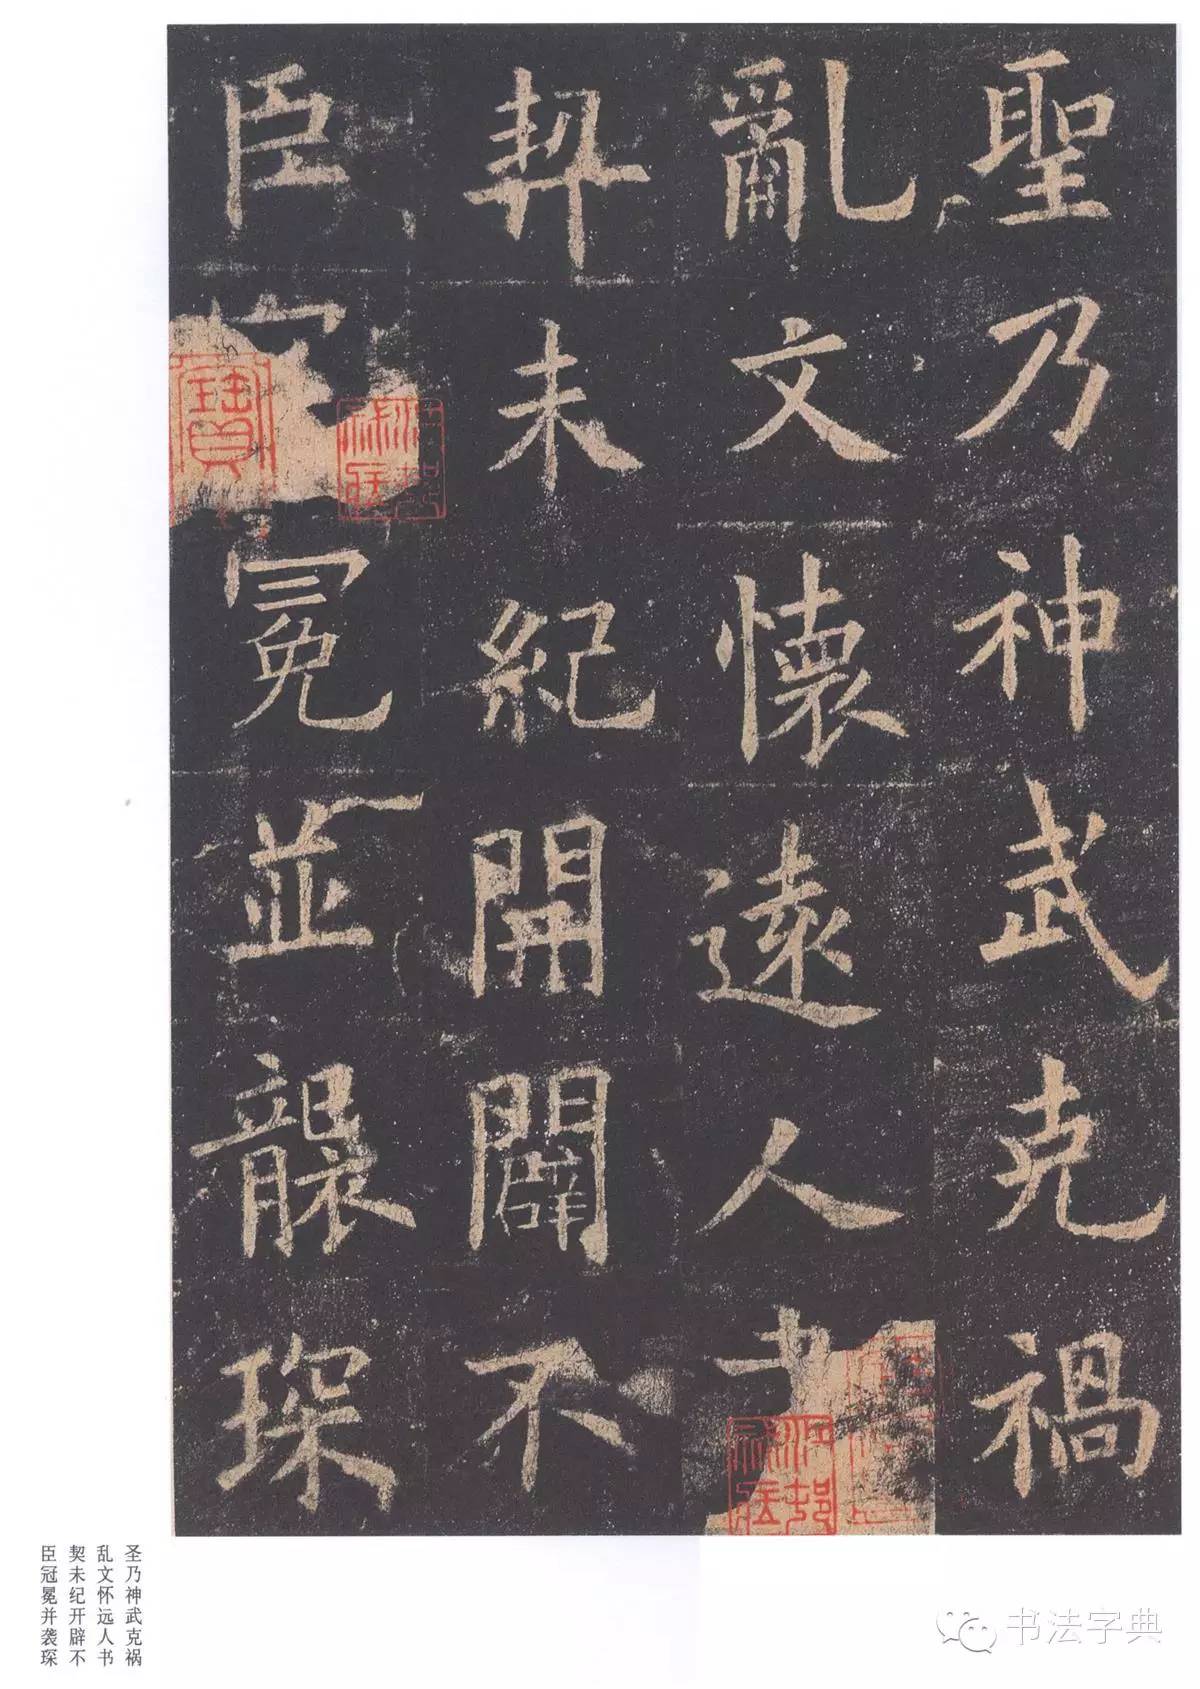 聖乃神武克禍
亂文懷遠人書
契未紀開闢不
臣冠冕並襲琛
圣乃神武克祸
乱文怀远人书
契未纪开辟不
臣冠冕并袭琛
书法字典